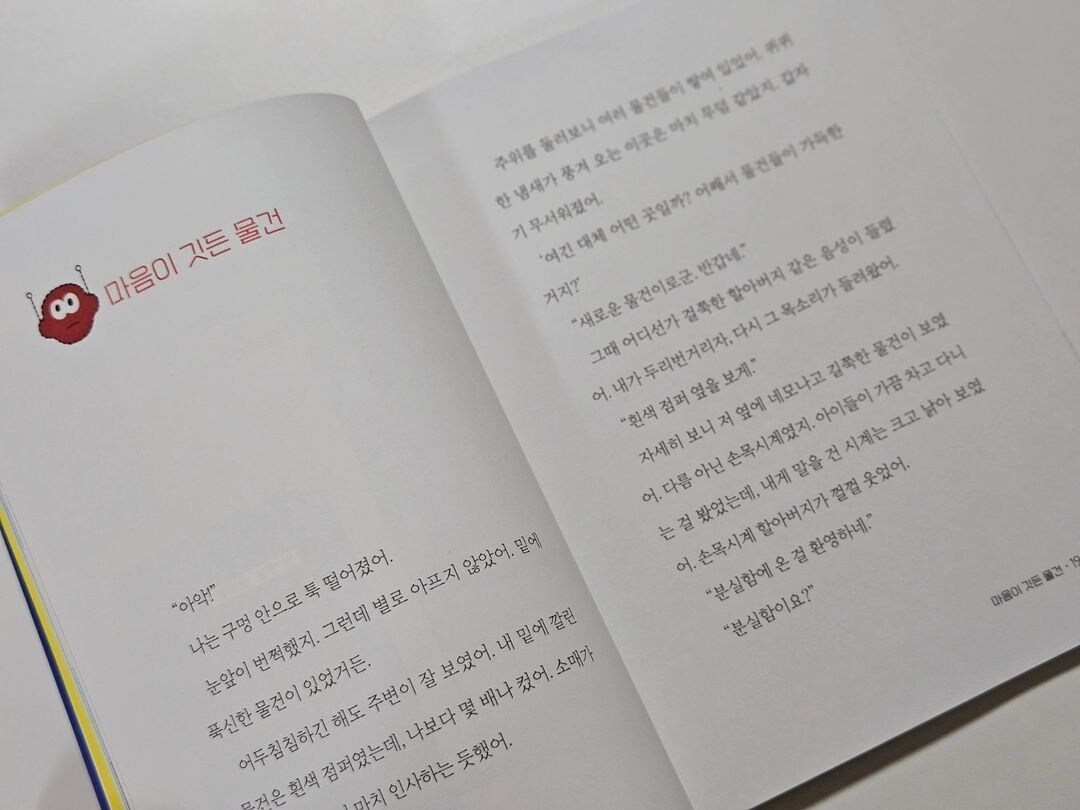 마음이 깃든 물건
“아악!”
나는 구멍 안으로 툭 떨어졌어.
눈앞이 번쩍했지. 그런데 별로 아프지 않았어. 밑에
푹신한 물건이 있었거든.
어두침침하긴 해도 주변이 잘 보였어. 내 밑에 깔린
물건은 흰색 점퍼였는데, 나보다 몇 배나 컸어. 소매가
마치 인사하는 듯했어.
주위를 둘러보니 여러 물건들이 쌓여 있었어. 퀴퀴
한 냄새가 풍겨 오는 이곳은 마치 무덤 같았지. 갑자
기 무서워졌어.
‘여긴 대체 어떤 곳일까? 어째서 물건들이 가득한
거지?’
“새로운 물건이로군. 반갑네.”
그때 어디선가 걸쭉한 할아버지 같은 음성이 들렸
어. 내가 두리번거리자, 다시 그 목소리가 들려왔어.
“흰색 점퍼 옆을 보게.”
자세히 보니 저 옆에 네모나고 길쭉한 물건이 보였
어. 다름 아닌 손목시계였지. 아이들이 가끔 차고 다니
는 걸 봤었는데, 내게 말을 건 시계는 크고 낡아 보였
어. 손목시계 할아버지가 껄껄 웃었어.
“분실함에 온 걸 환영하네.”
“분실함이요?”
마음이 깃든 물건 • 19